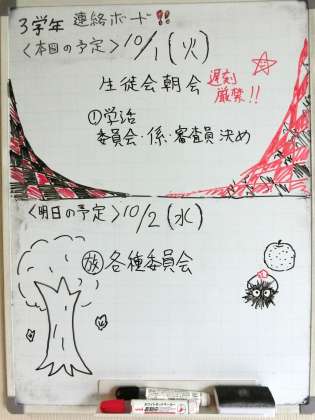 3学年 連絡ボード!!
〈本日の予定〉10/1(火)
生徒会朝会 遅刻厳禁!!
①学活
委員会・係・審査員決め
〈明日の予定〉10/2(水)
放 各種委員会